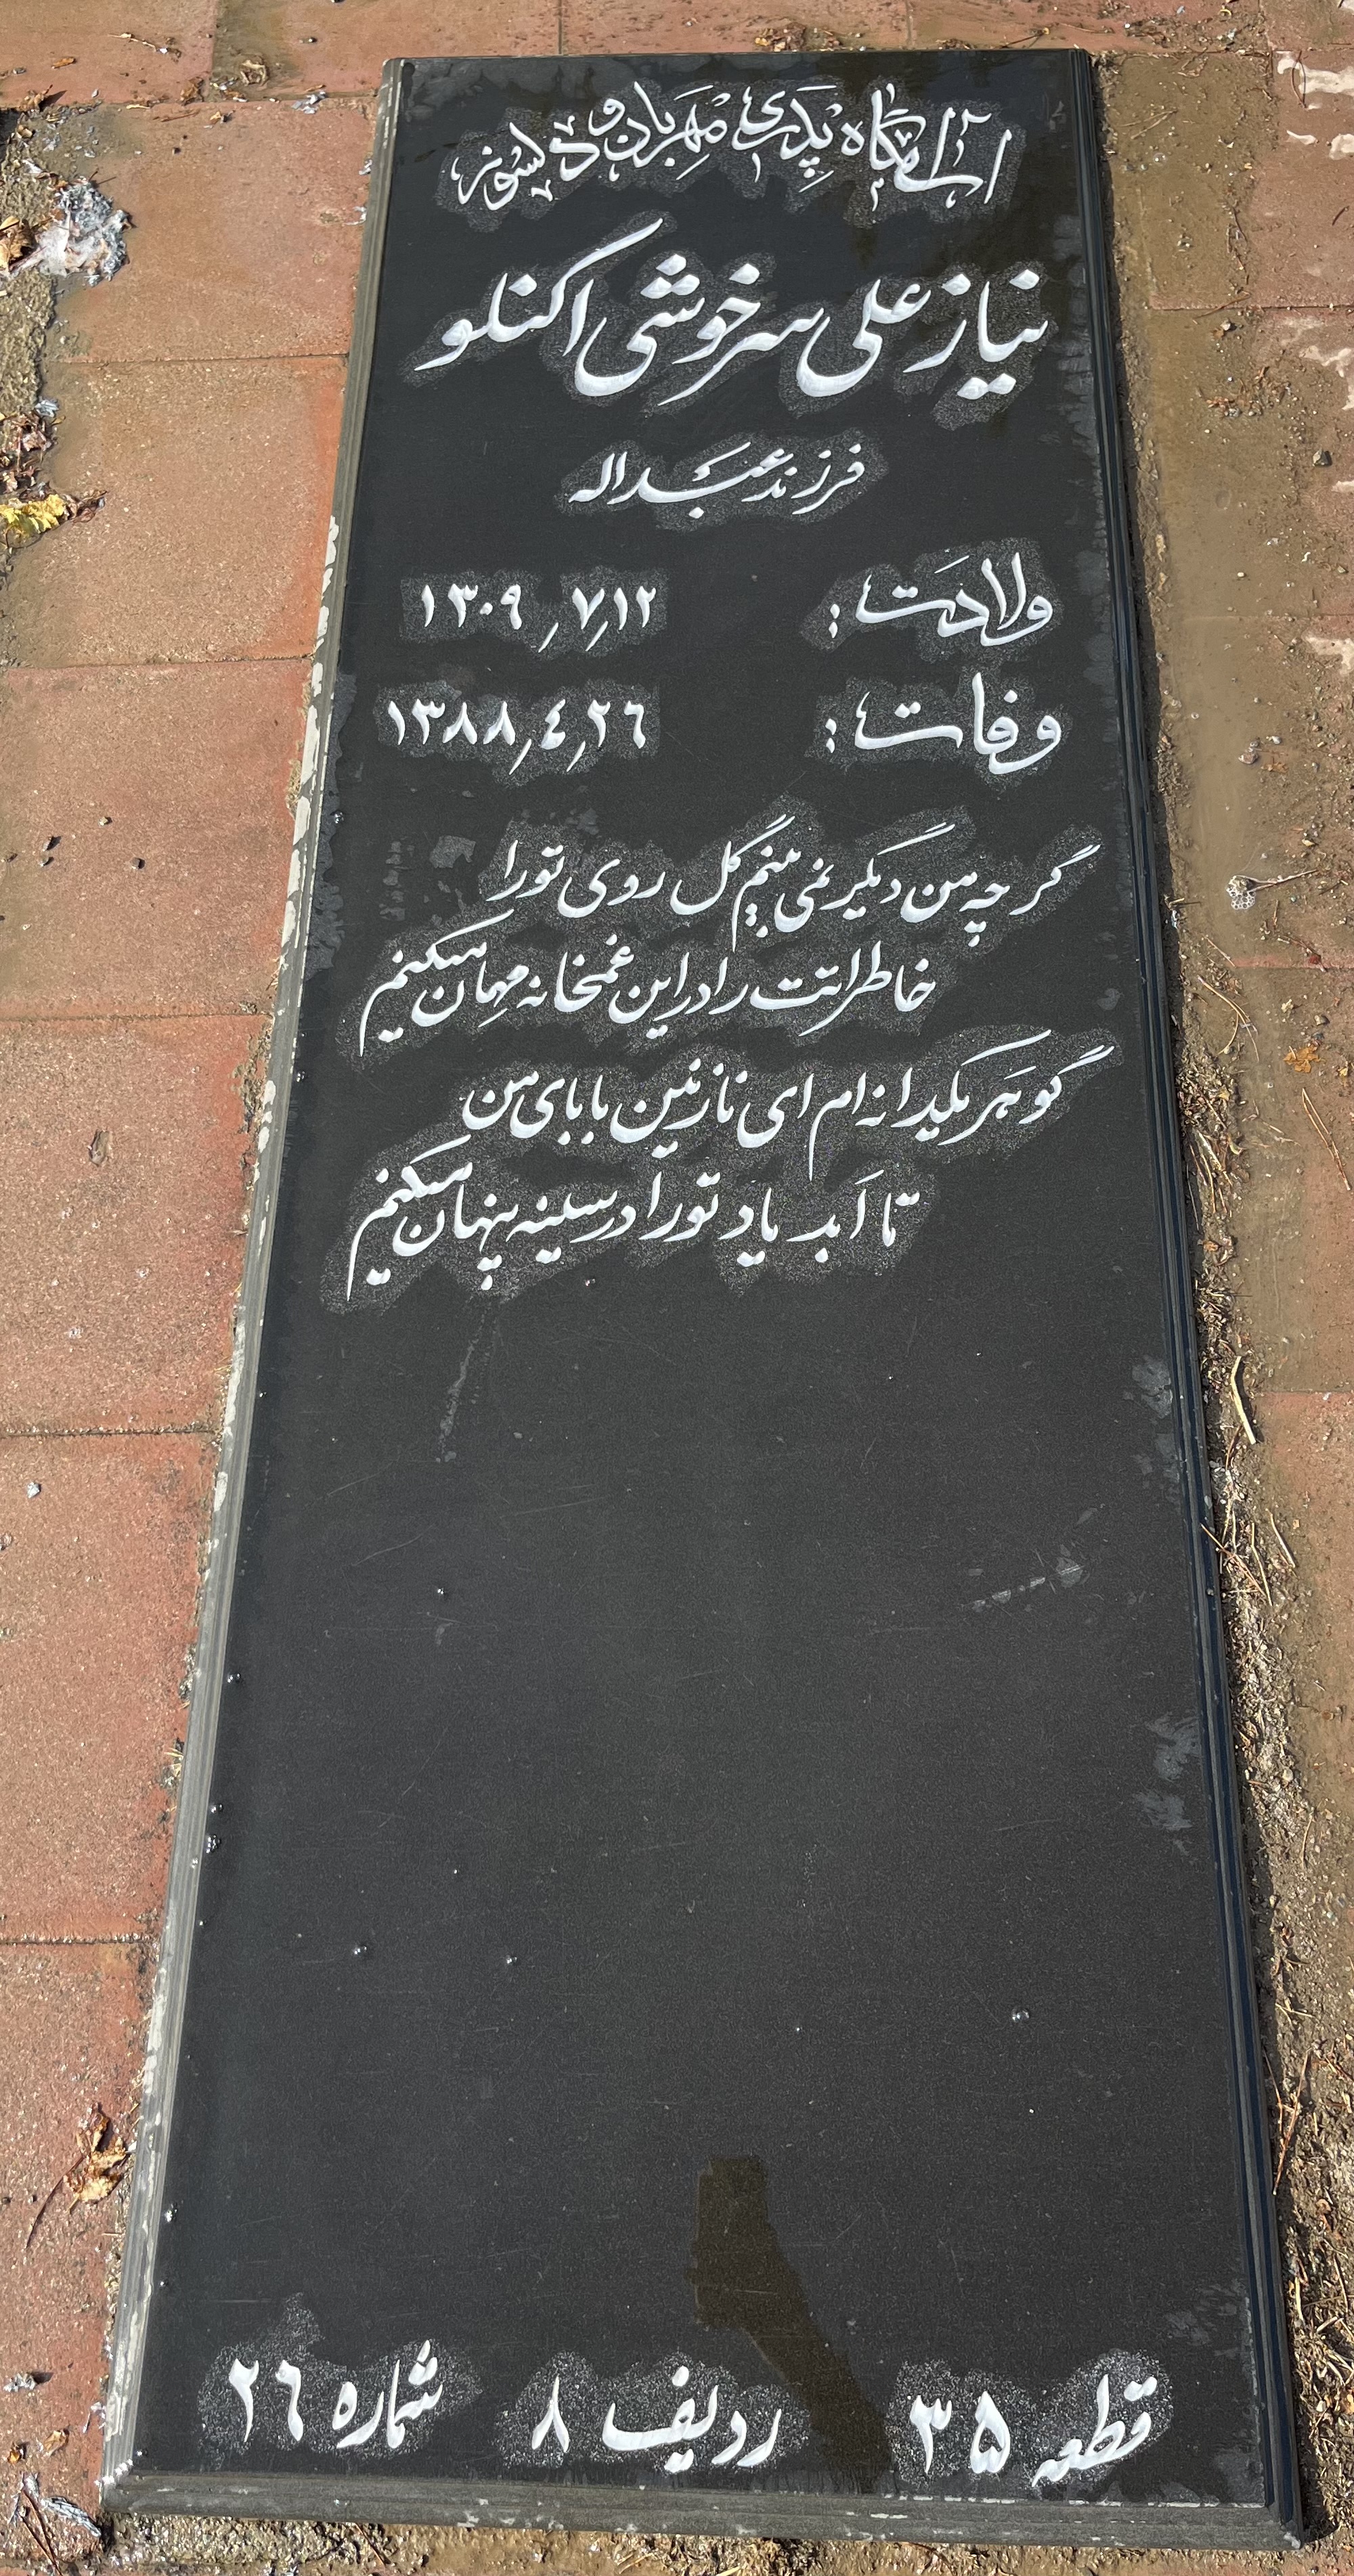 آرامگاه پدری مهربان و دلسوز
نیاز علی سرخوشی اکنلو
فرزند عبداله
ولادت : ۱۳۰۹/۷/۱۲
وفات : ۱۳۸۸/٤/۲٦
گر چه من دیگر نمی بینم گل روی تو را
خاطراتت را در این غمخانه مهمان میکنیم
گوهر یکدانه ام ای نازنین بابای من
تا اَبد یاد تو را در سینه پنهان میکنیم
قطعه ۳۵ ردیف ۸ شماره ۲٦